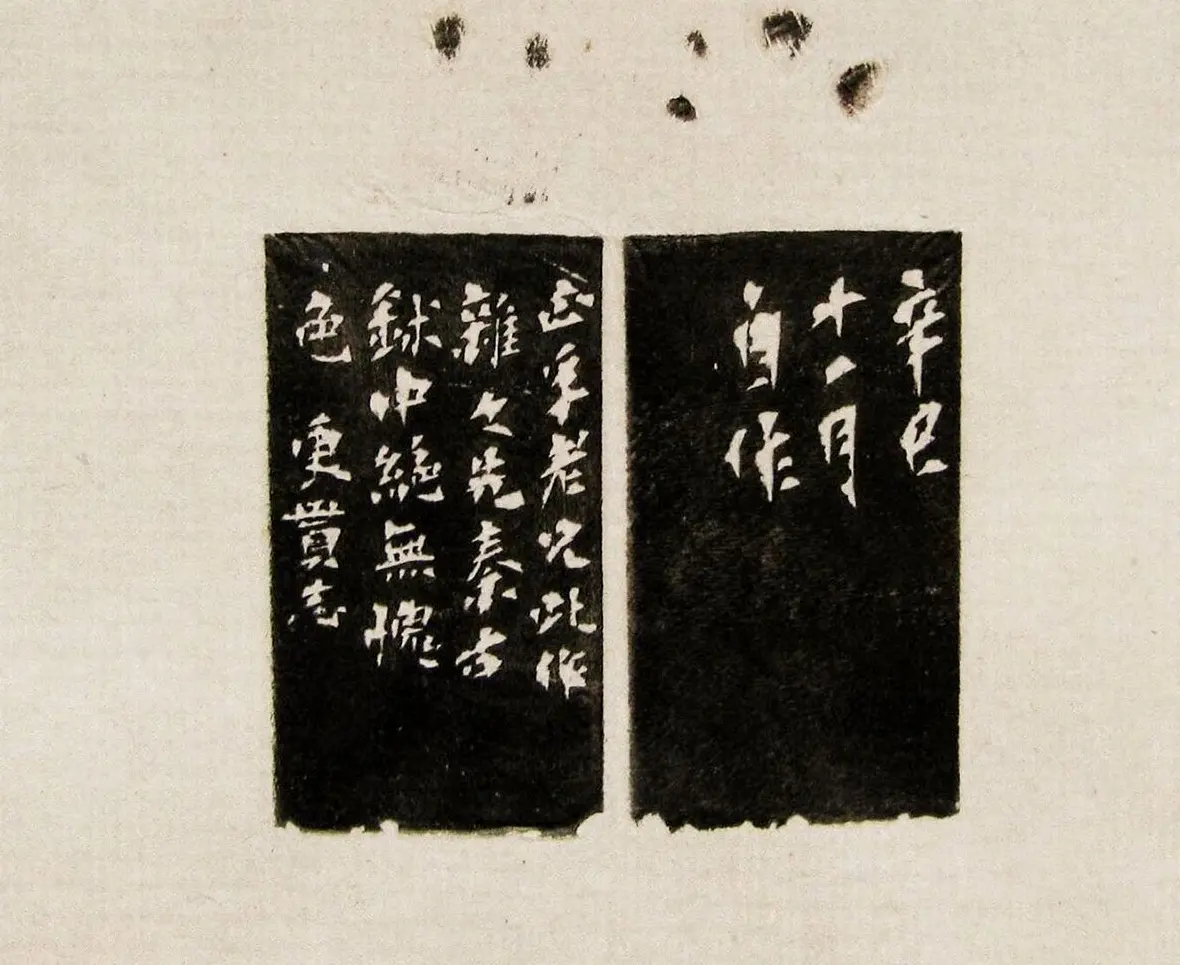 辛巳
十一月
自作
正峯老兄此作
雜之先秦古
鉥中絕無愧
色 更貰志